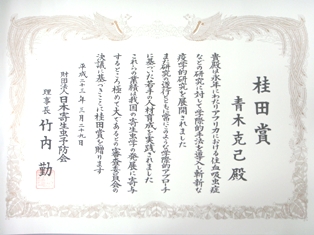 桂田賞
青木克己殿
貴殿は永年にわたりアフリカにおける住血吸虫症
などの研究に対して学際的手法を導入し斬新な
疫学的研究を展開されました
また研究の遂行とともに常にこのような学際的アプローチ
に基づいた若手の人材育成を実践されました
これらの業績は我国の寄生虫学の発展に寄与
するところ極めて大であるとの審査委員会の
決議に基づきここに桂田賞を贈ります
平成二十三年三月二十九日
財団法人日本寄生虫予防会
理事長 竹内勤